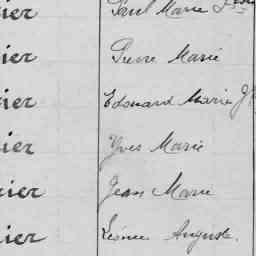 ier Paul Marie
ier Pierre Marie
ier Edouard Marie J
ier Yves Marie
ier Jean Marie
ier Auguste.